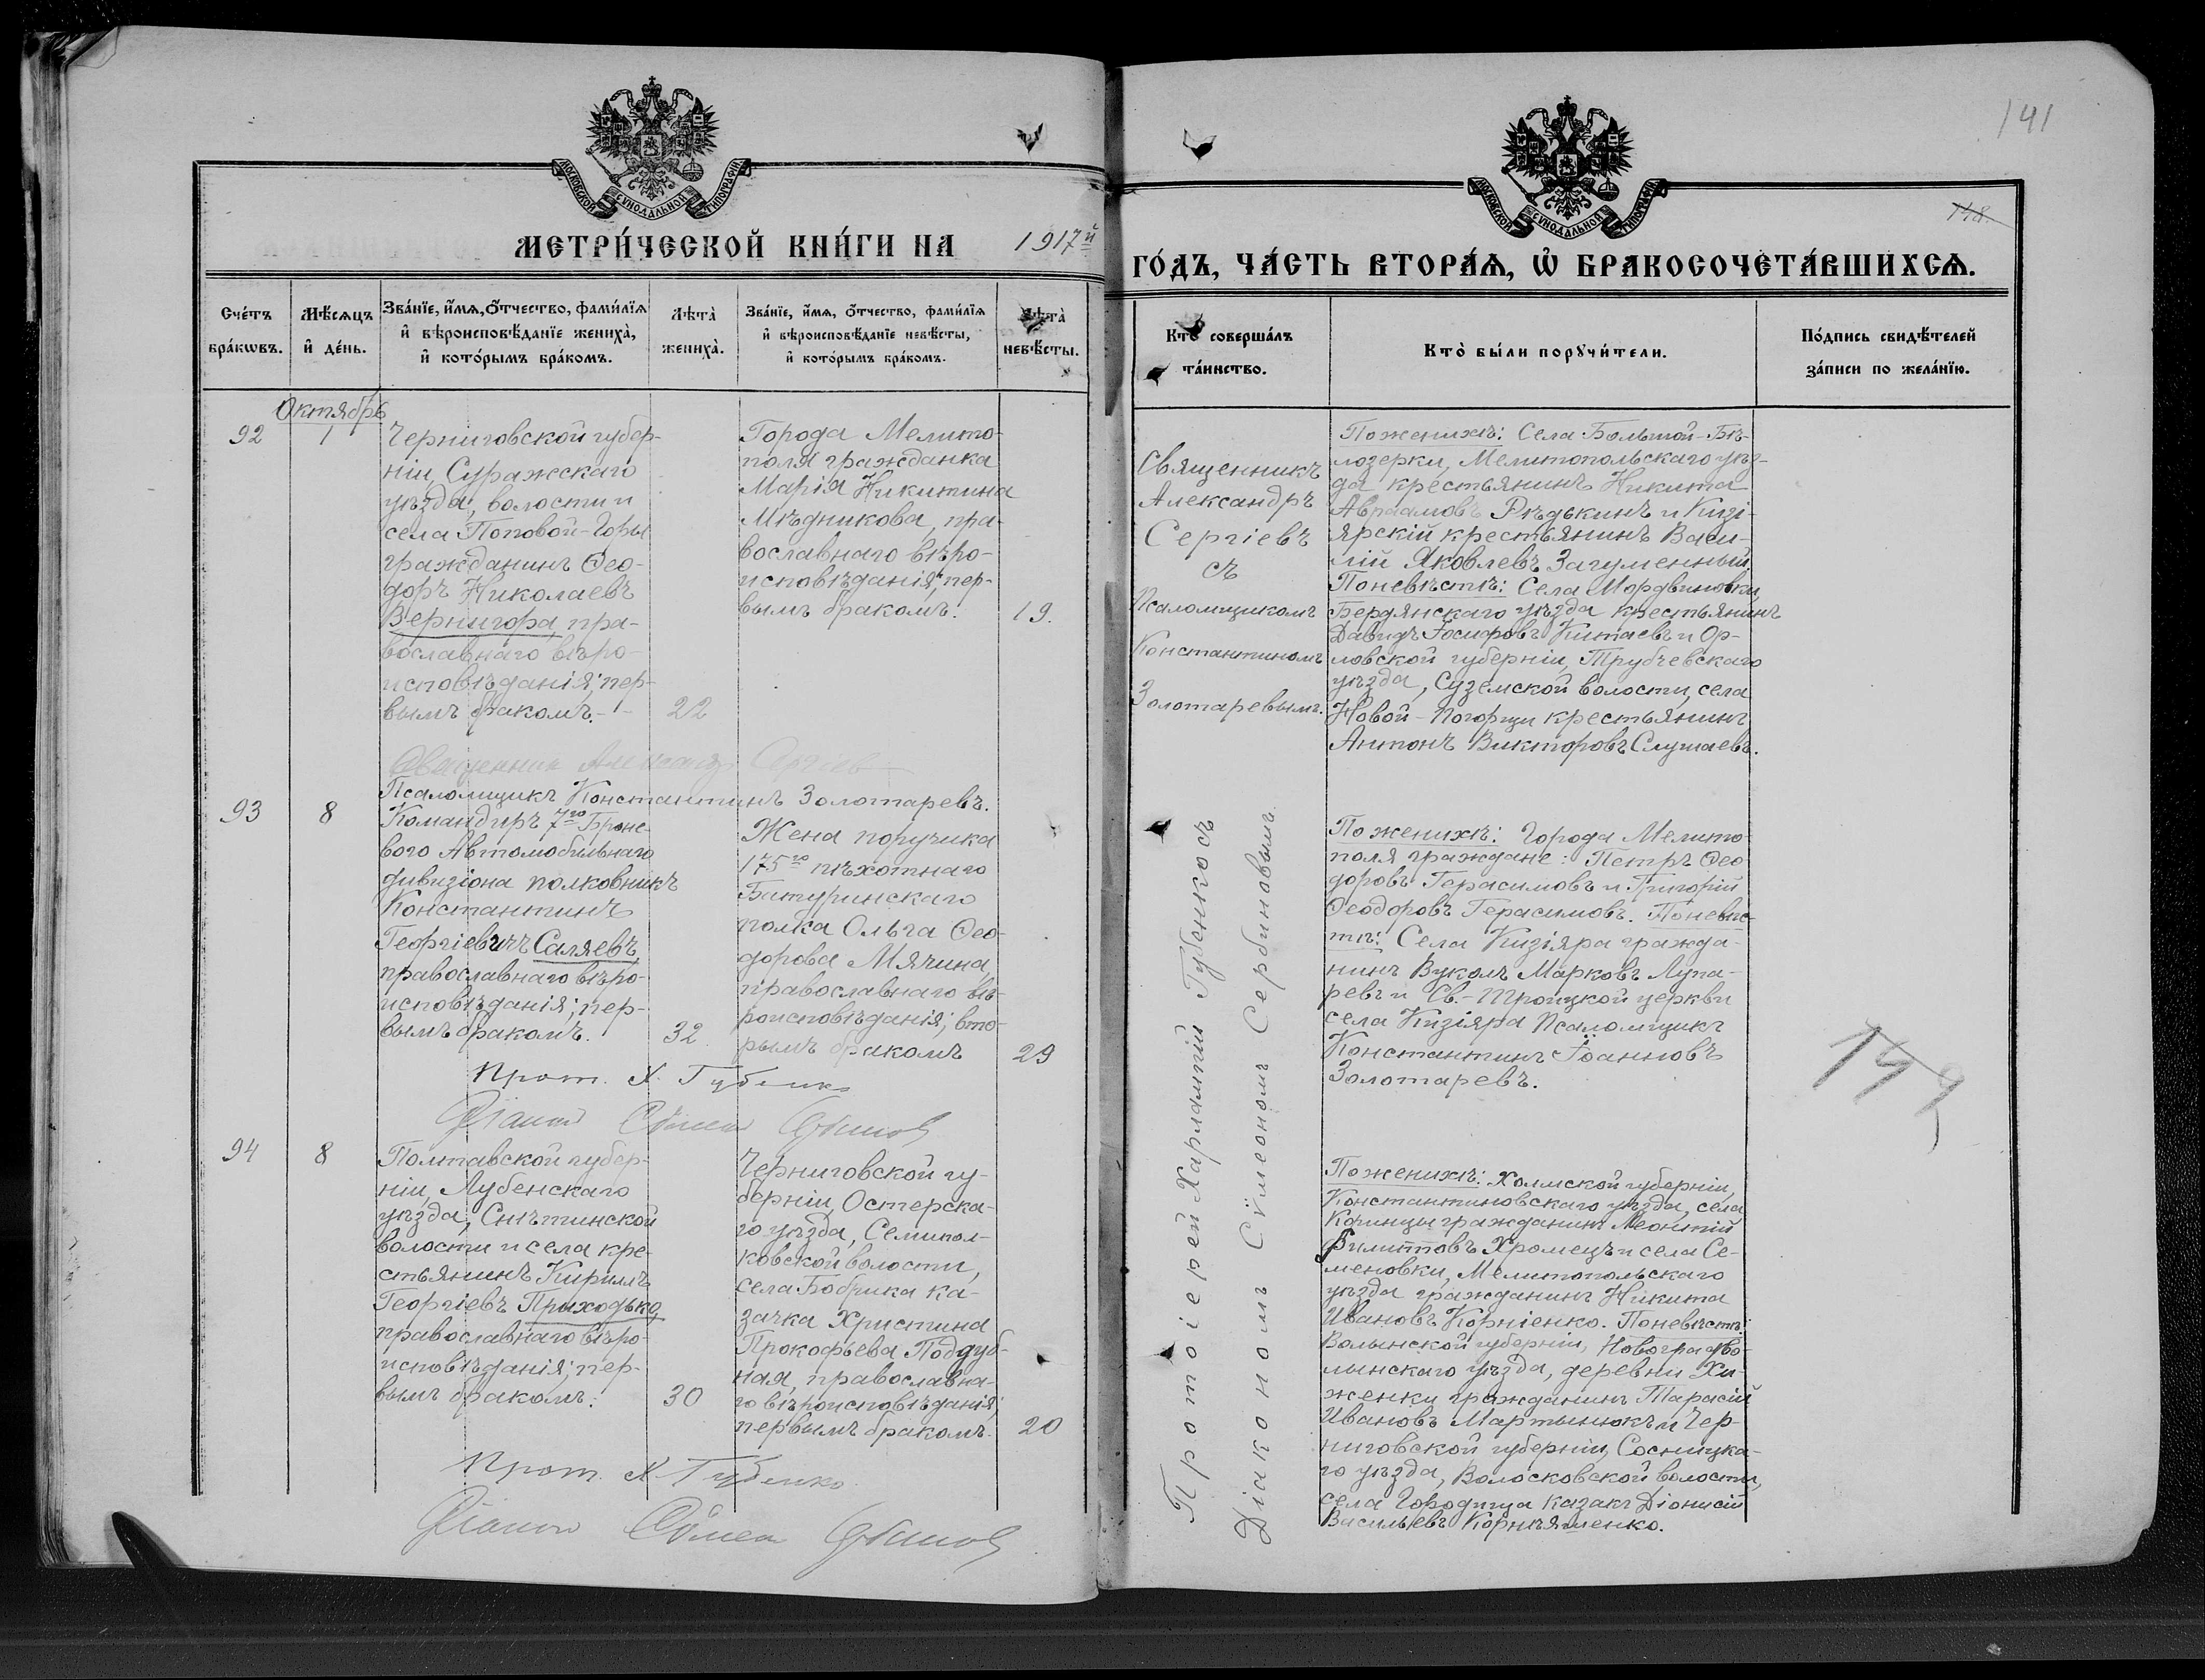 141
МОСКОВСКОЙ СѴНОДАЛЬНОЙ ТИПОГРАФІИ
МОСКОВСКОЙ СѴНОДАЛЬНОЙ ТИПОГРАФІИ
148.
МЕТРИ́ЧЕСКОЙ КНИ́ГИ НА 1917й
ГО́ДЪ, ЧА́СТЬ ВТОРА́Ѧ, Ѡ҆ БРАКОСОЧЕТА́ВШИХСѦ.
Сче́тъ
бра́кѡвъ.
Мѣ́сѧцъ
и҆ де́нь.
Зва́нїе, и҆́мѧ, о҆́тчество, фами́лїѧ
и҆ вѣроисповѣ́данїе жениха̀,
и҆ кото́рымъ бра́комъ.
Лѣта̀
жениха̀.
Зва́нїе, и҆́мѧ, о҆́тчество, фами́лїѧ
и҆ вѣроисповѣ́данїе невѣ́сты,
и҆ кото́рымъ бра́комъ.
Лѣта̀
невѣ́сты.
Кто̀ соверша́лъ
та́инство.
Кто̀ бы́ли порꙋчи́тели.
По́дпись свидѣ́телей
за́писи по жела́нїю.
Октябрь
92
1
Черниговской губер-
ніи, Суражскаго
уѣзда, волости и
села Поповой-Горы
гражданинъ Ѳео-
доръ Николаевъ
Вернигора, пра-
вославнаго вѣро-
исповѣданія; пер-
вымъ бракомъ. -
22
Города Мелито-
поля гражданка
Марія Никитина
Мѣдникова, пра-
вославнаго вѣро-
исповѣданія; пер-
вымъ бракомъ.
19.
Священникъ
Александръ
Сергіевъ
съ
Псаломщикомъ
Константиномъ
Золотаревымъ.
По женихѣ: Села Большой-Бѣ-
лозерки, Мелитопольскаго уѣз-
да крестьянинъ Никита
Авраамовъ Рѣдькинъ и Кизі-
ярскій крестьянинъ Васи-
лій Яковлевъ Загуменный.
По невѣстѣ: Села Мордвиновки,
Бердянскаго уѣзда крестьянинъ
Давидъ Іосифовъ Китаевъ и Ор-
ловской губерніи, Трубчевскаго
уѣзда, Суземской волости, села
Новой-Погощи крестьянинъ
Антонъ Викторовъ Слушаевъ.
Священник Александр Сергіев
Псаломщикъ Константинъ Золотаревъ.
93
8
Командиръ 7го Броне-
вого Автомобильнаго
дивизіона полковникъ
Константинъ
Георгіевичъ Саляевъ,
православнаго вѣро-
исповѣданія; пер-
вымъ бракомъ.
32
Жена поручика
175го пѣхотнаго
Батуринскаго
полка Ольга Ѳео-
дорова Мячина,
православнаго вѣ-
роисповѣданія; вто-
рымъ бракомъ
29
Протоіерей Харлампій Губенко съ
Діакономъ Сѵмеономъ Сербиновымъ
По женихѣ: Города Мелито-
поля граждане: Петръ Ѳео-
доровъ Герасимовъ и Григорій
Ѳеодоровъ Герасимовъ. По невѣс-
тѣ: Села Кизіяра гражда-
нинъ Вуколъ Марковъ Лупа-
ревъ и Св.-Троицкой церкви
села Кизіяра Псаломщикъ
Константинъ Іоанновъ
Золотаревъ.
149
Прот. Х. Губенко
Діакон Сѵмеон
94
8
Полтавской губер-
ніи, Лубенскаго
уѣзда, Снѣтинской
волости и села кре-
стьянинъ Кириллъ
Георгіевъ Приходько,
православнаго вѣро-
исповѣданія; пер-
вымъ бракомъ.
30
Черниговской гу-
берніи, Остерска-
го уѣзда, Семипол-
ковской волости,
села Бобрика ка-
зачка Христина
Прокофьева Поддуб-
ная, православна-
го вѣроисповѣданія;
первымъ бракомъ.
20
По женихѣ: Холмской губерніи,
Константиновскаго уѣзда, села
гражданинъ Леонтій
Филипповъ Хромецъ и села Се-
меновки, Мелитопольскаго
уѣзда гражданинъ Никита
Ивановъ Корніенко. По невѣстѣ:
Волынской губерніи, Новоградво-
лынскаго уѣзда, деревни Хи-
женки гражданинъ Тарасій
Ивановъ Мартынюкъ и Чер-
ниговской губерніи, Сосницка-
го уѣзда, Волосковской волости,
села Городища казакъ Діонисій
Васильевъ
Прот. Х. Губенко
Діакон Сѵмеон